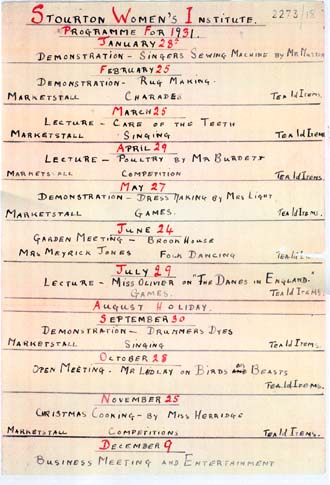 Stourton Women's Institute.
2273/18
Programme For 1931.
January 28th
Demonstration - Singers Sewing Machine by Mr
February 25
Demonstration - Rug Making.
Marketstall Charades Tea 1d Items
March 25
Lecture - Care of the Teeth
Marketstall Singing Tea 1d Items
April 29
Lecture - Poultry by Mr Burdett
Marketstall Competition Tea 1d Items.
May 27
Demonstration - Dress Making by Mrs Light
Marketstall Games. Tea 1d Items.
June 24
Garden Meeting - Brook House
Mrs Mayrick Jones Folk Dancing Tea 1d
July 29
Lecture - Miss Olivier on "The Danes in England."
Games. Tea 1d Items.
August Holiday.
September 30
Demonstration - Drummers Dyes
Marketstall Singing Tea 1d Items.
October 28
Open Meeting. Mr Ledlay on Birds and Beasts
Tea 1d Items.
November 25
Christmas Cooking - by Miss Herridge
Marketstall Competitions Tea 1d Items.
December 9
Business Meeting and Entertainment